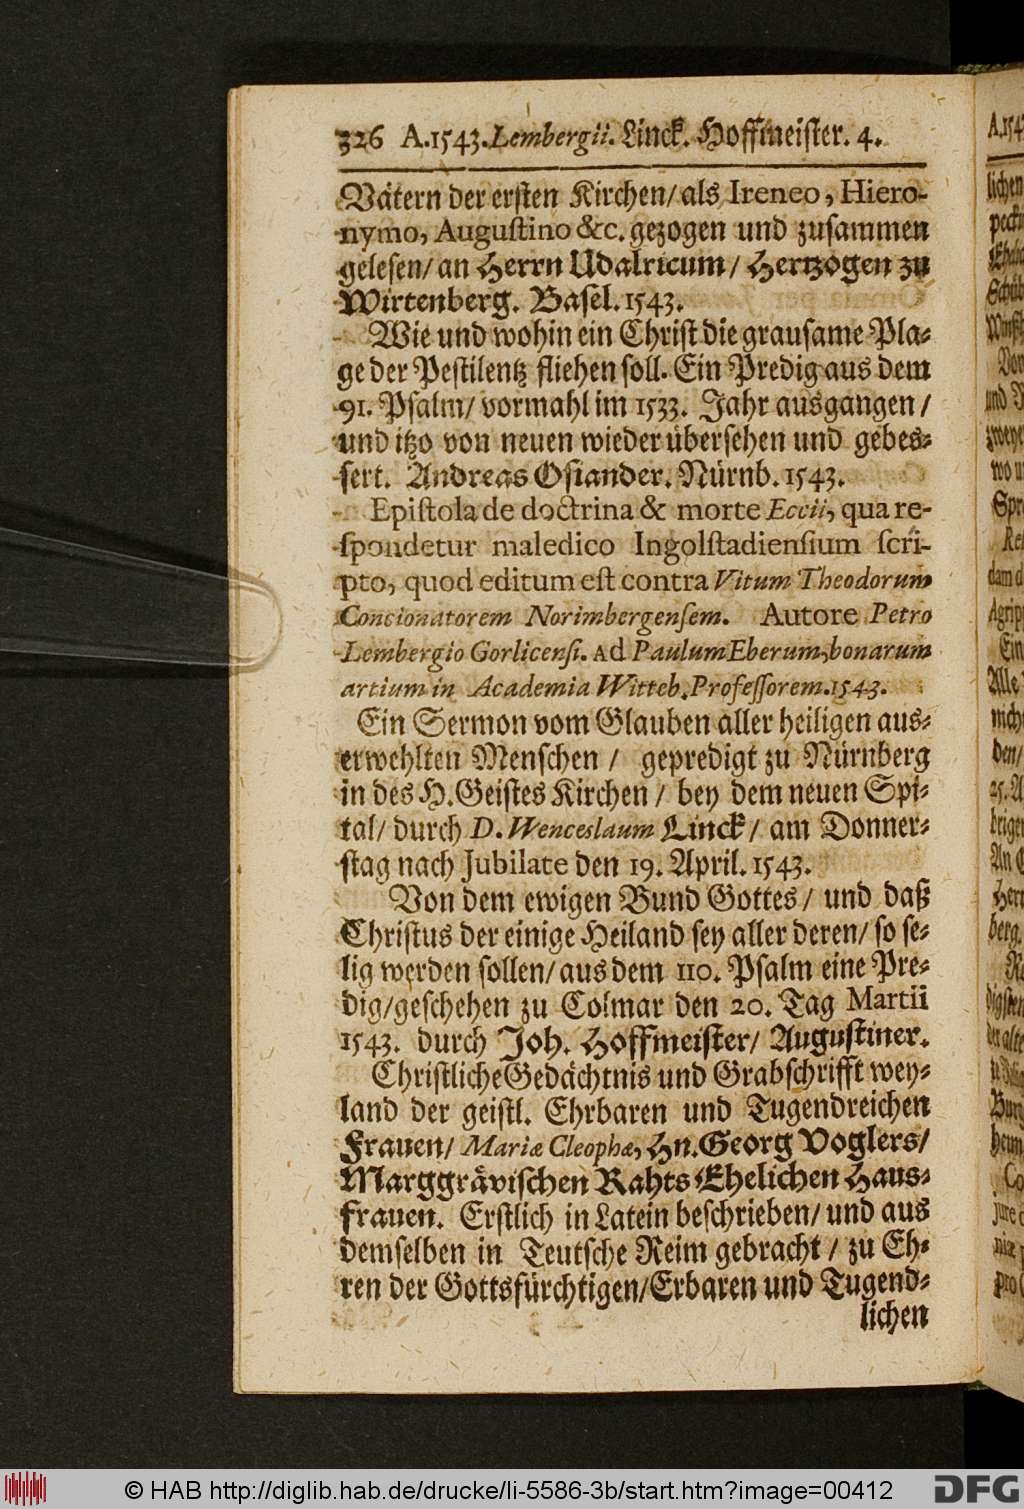 326 A.1543. Lembergii. Linck. Hoffmeister. 4.
Vätern der ersten Kirchen/ als Ireneo, Hiero-
nymo, Augustino &c. gezogen und zusammen
gelesen/ an Herrn Udalricum/ Hertzogen zu
Wirtenberg. Basel. 1543.
Wie und wohin ein Christ die grausame Pla-
ge der Pestilentz fliehen soll. Ein Predig aus dem
91. Psalm/ vormahl im 1533. Jahr ausgangen/
und itzo von neuen wieder übersehen und gebes-
sert. Andreas Osiander. Nürnb. 1543.
Epistola de doctrina & morte Eccii, qua re-
spondetur maledico Ingolstadiensium scri-
pto, quod editum est contra Vitum Theodorum
Concionatorem Norimbergensem. Autore Petro
Lembergio Gorlicensi. Ad Paulum Eberum, bonarum
artium in Academia Witteb. Professorem. 1543.
Ein Sermon vom Glauben aller heiligen aus-
erwehlten Menschen / gepredigt zu Nürnberg
in des H. Geistes Kirchen / bey dem neuen Spi-
tal/ durch D. Wenceslaum Linck/ am Donner-
stag nach Jubilate den 19. April. 1543.
Von dem ewigen Bund Gottes/ und daß
Christus der einige Heiland sey aller deren/ so se-
lig werden sollen/ aus dem 110. Psalm eine Pre-
dig/ geschehen zu Colmar den 20. Tag Martii
1543. durch Joh. Hoffmeister/ Augustiner.
Christliche Gedächtnis und Grabschrifft wey-
land der geistl. Ehrbaren und Tugendreichen
Frauen/ Mariæ Cleophæ, Hn. Georg Voglers/
Marggrävischen Rahts Ehelichen Haus-
frauen. Erstlich in Latein beschrieben/ und aus
demselben in Teutsche Reim gebracht / zu Eh-
ren der Gottsfürchtigen/ Erbaren und Tugend-
lichen
© HAB http://diglib.hab.de/drucke/li-5586-3b/start.htm?image=00412
DFG